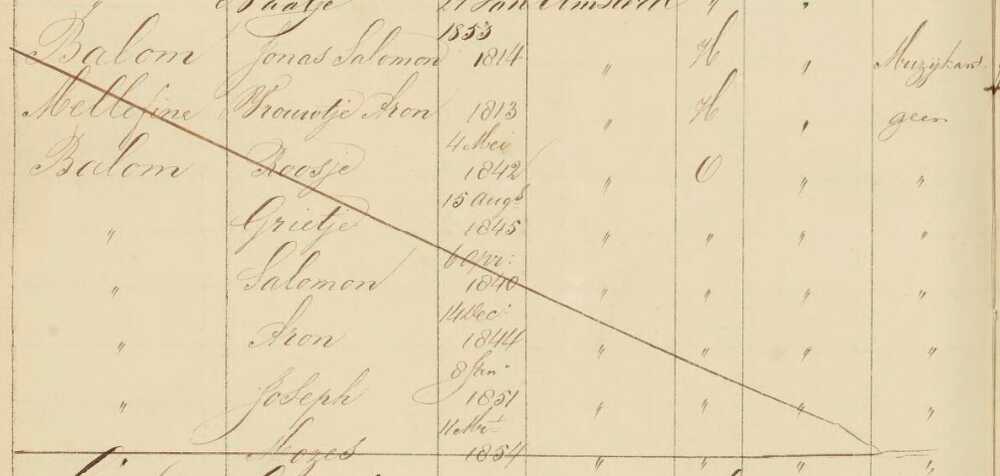 " Vaatje 21 Jan Amsterd " "
1853
Balom Jonas Salomon 1814 " H " Muzijkant
Mellefine Vrouwtje Aron 1813 " H " geen
4 Mei
Balom Roosje 1842 " O " "
15 Augs
" Grietje 1845 " " " "
6 Apr:
" Salomon 1840 " " " "
14 Dec:
" Aron 1844 " " " "
8 Jan:
" Joseph 1851 " " " "
11 Mrt
Mozes 1854 " " " "